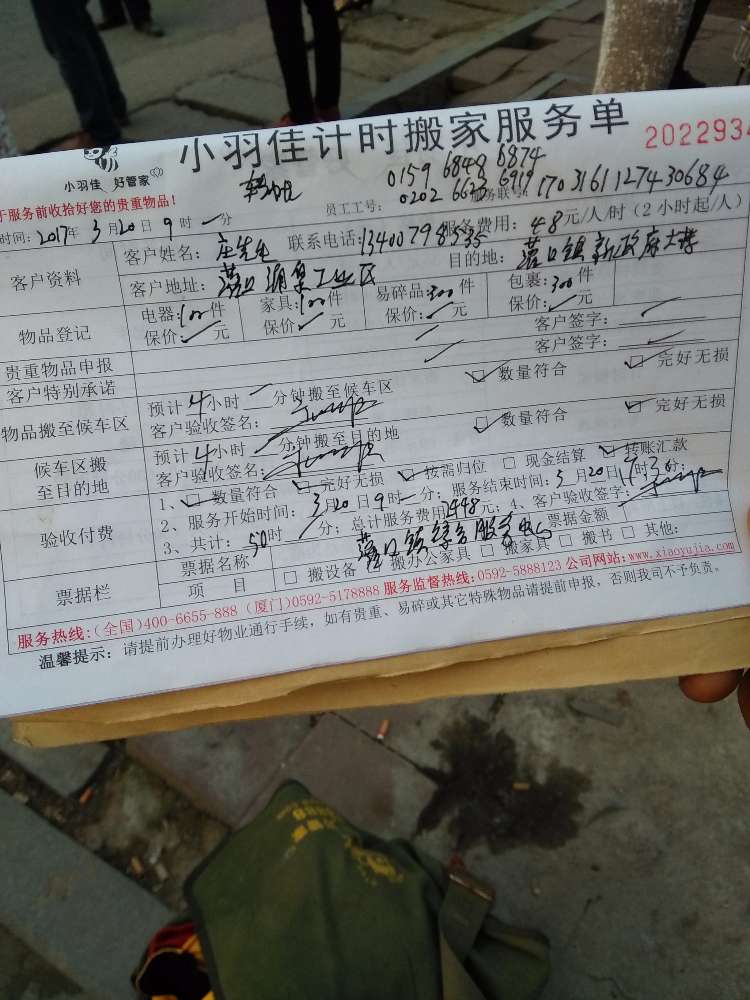 小羽佳计时搬家服务单
小羽佳 好管家
2022934
于服务前收拾好您的贵重物品!
0159 6848 6874
员工工号: 0202 6623 6919 服务联号: 1703161127430684
时间: 2017年3月20日9时一分 服务费用: 48元/人/时(2小时起/人)
客户资料
客户姓名: 庄先生 联系电话: 13400798535 目的地: 营口镇新政府大楼
客户地址: 工业区
物品登记
电器: 100件 家具: 100件 易碎品: 300件 包裹: 300件
保价: ✓元 保价: ✓元 保价: ✓元 保价: ✓元
贵重物品申报 ✓ 客户签字: ✓
客户特别承诺 ✓ 客户签字: ✓
物品搬至候车区
预计4小时一分钟搬至候车区 ☑数量符合 ☑完好无损
客户验收签名:
候车区搬至目的地
预计4小时一分钟搬至目的地 ☑数量符合 ☑完好无损
客户验收签名:
验收付费
1、☑数量符合 ☑完好无损 ☑按需归位 □现金结算 ☑转账汇款
2、服务开始时间: 3月20日9时一分; 服务结束时间: 3月20日17时30分;
3、共计: 50时/分; 总计服务费用2448元; 4、客户验收签字:
票据栏
票据名称 服务中心 票据金额
项 目 □搬设备 □搬办公家具 □搬家具 □搬书 □其他:
服务热线:(全国)400-6655-888 (厦门)0592-5178888 服务监督热线:0592-5888123 公司网站:www.xiaoyujia.com
温馨提示: 请提前办理好物业通行手续,如有贵重、易碎或其它特殊物品请提前申报,否则我司不予负责。